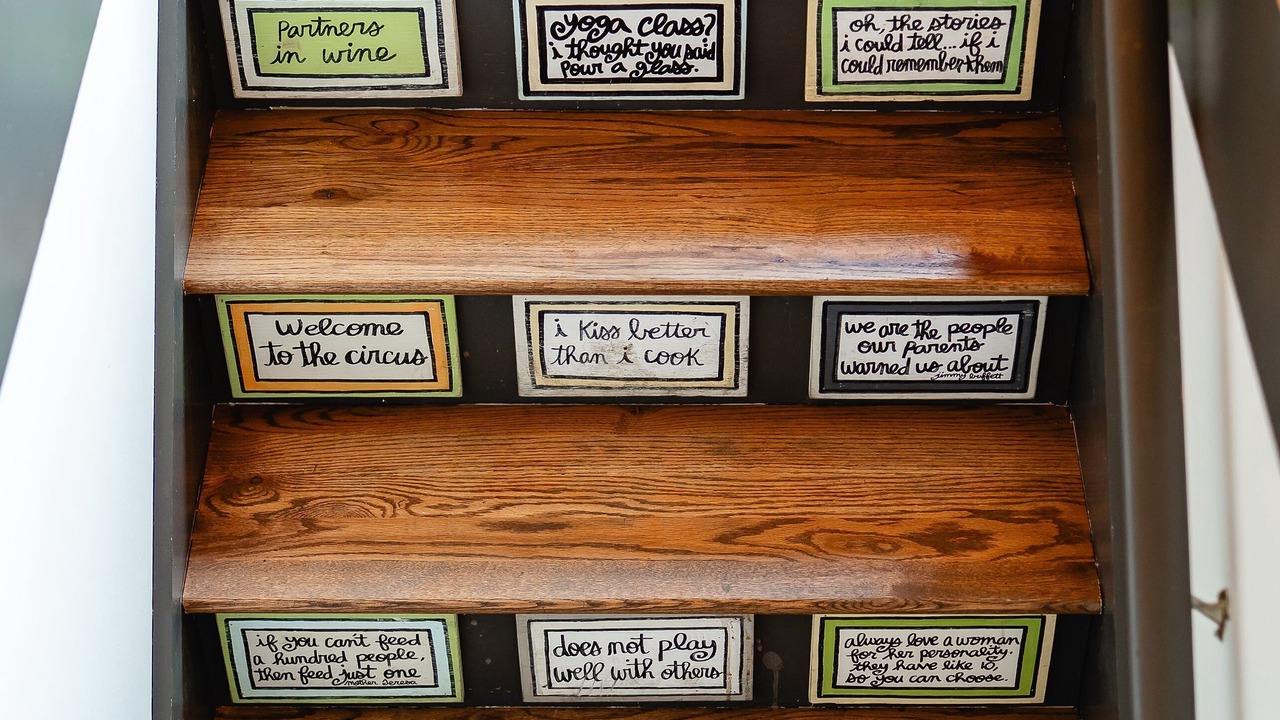 Partners
in wine
yoga class?
i thought you said
pour a glass.
oh, the stories
i could tell... if i
could remember them
Welcome
to the circus
i kiss better
than i cook
we are the people
our parents
warned us about
jimmy buffett
if you can't feed
a hundred people,
then feed just one
mother teresa
does not play
well with others
always love a woman
for her personality.
they have like 10,
so you can choose.